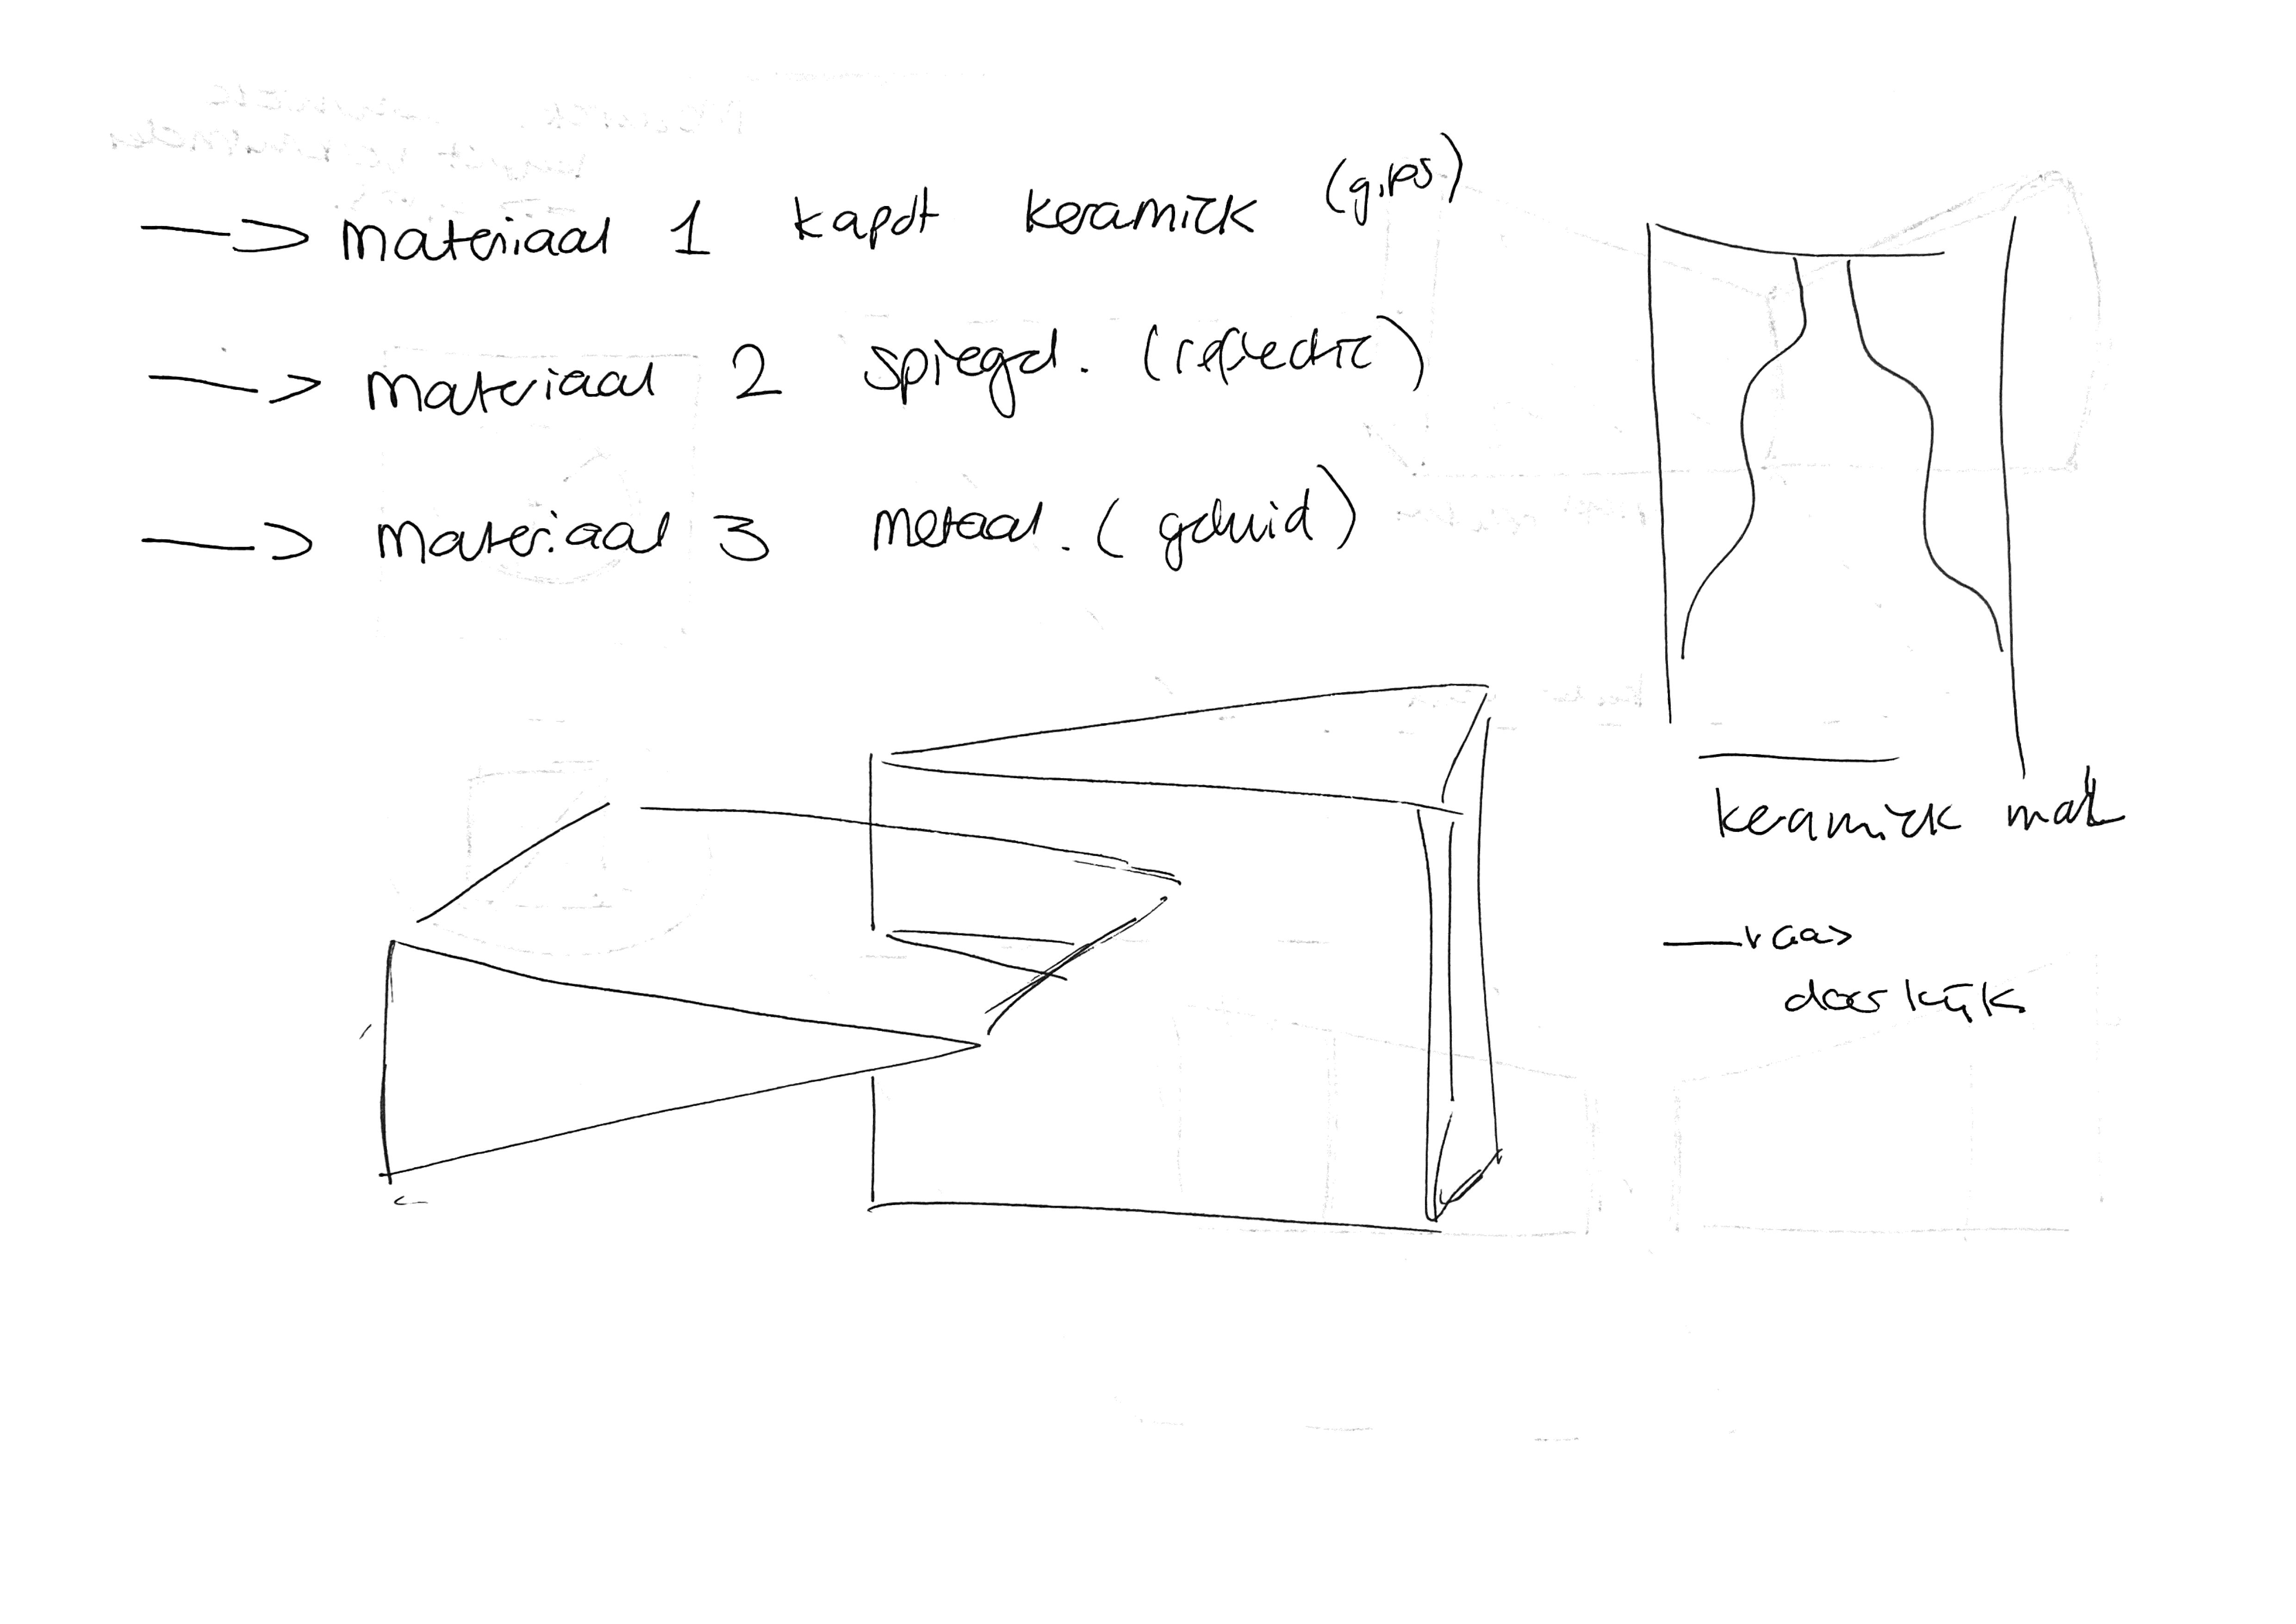 —> materiaal 1 kapot keramiek (gips)
—> materiaal 2 spiegel. (reflectie)
—> materiaal 3 metaal. (geluid)
keramiek mal
—vaas
doorkijk